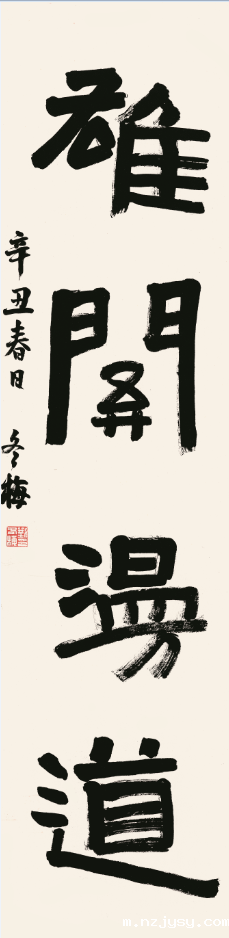 雄關漫道
辛丑春日 冬梅
m.nzjysy.com